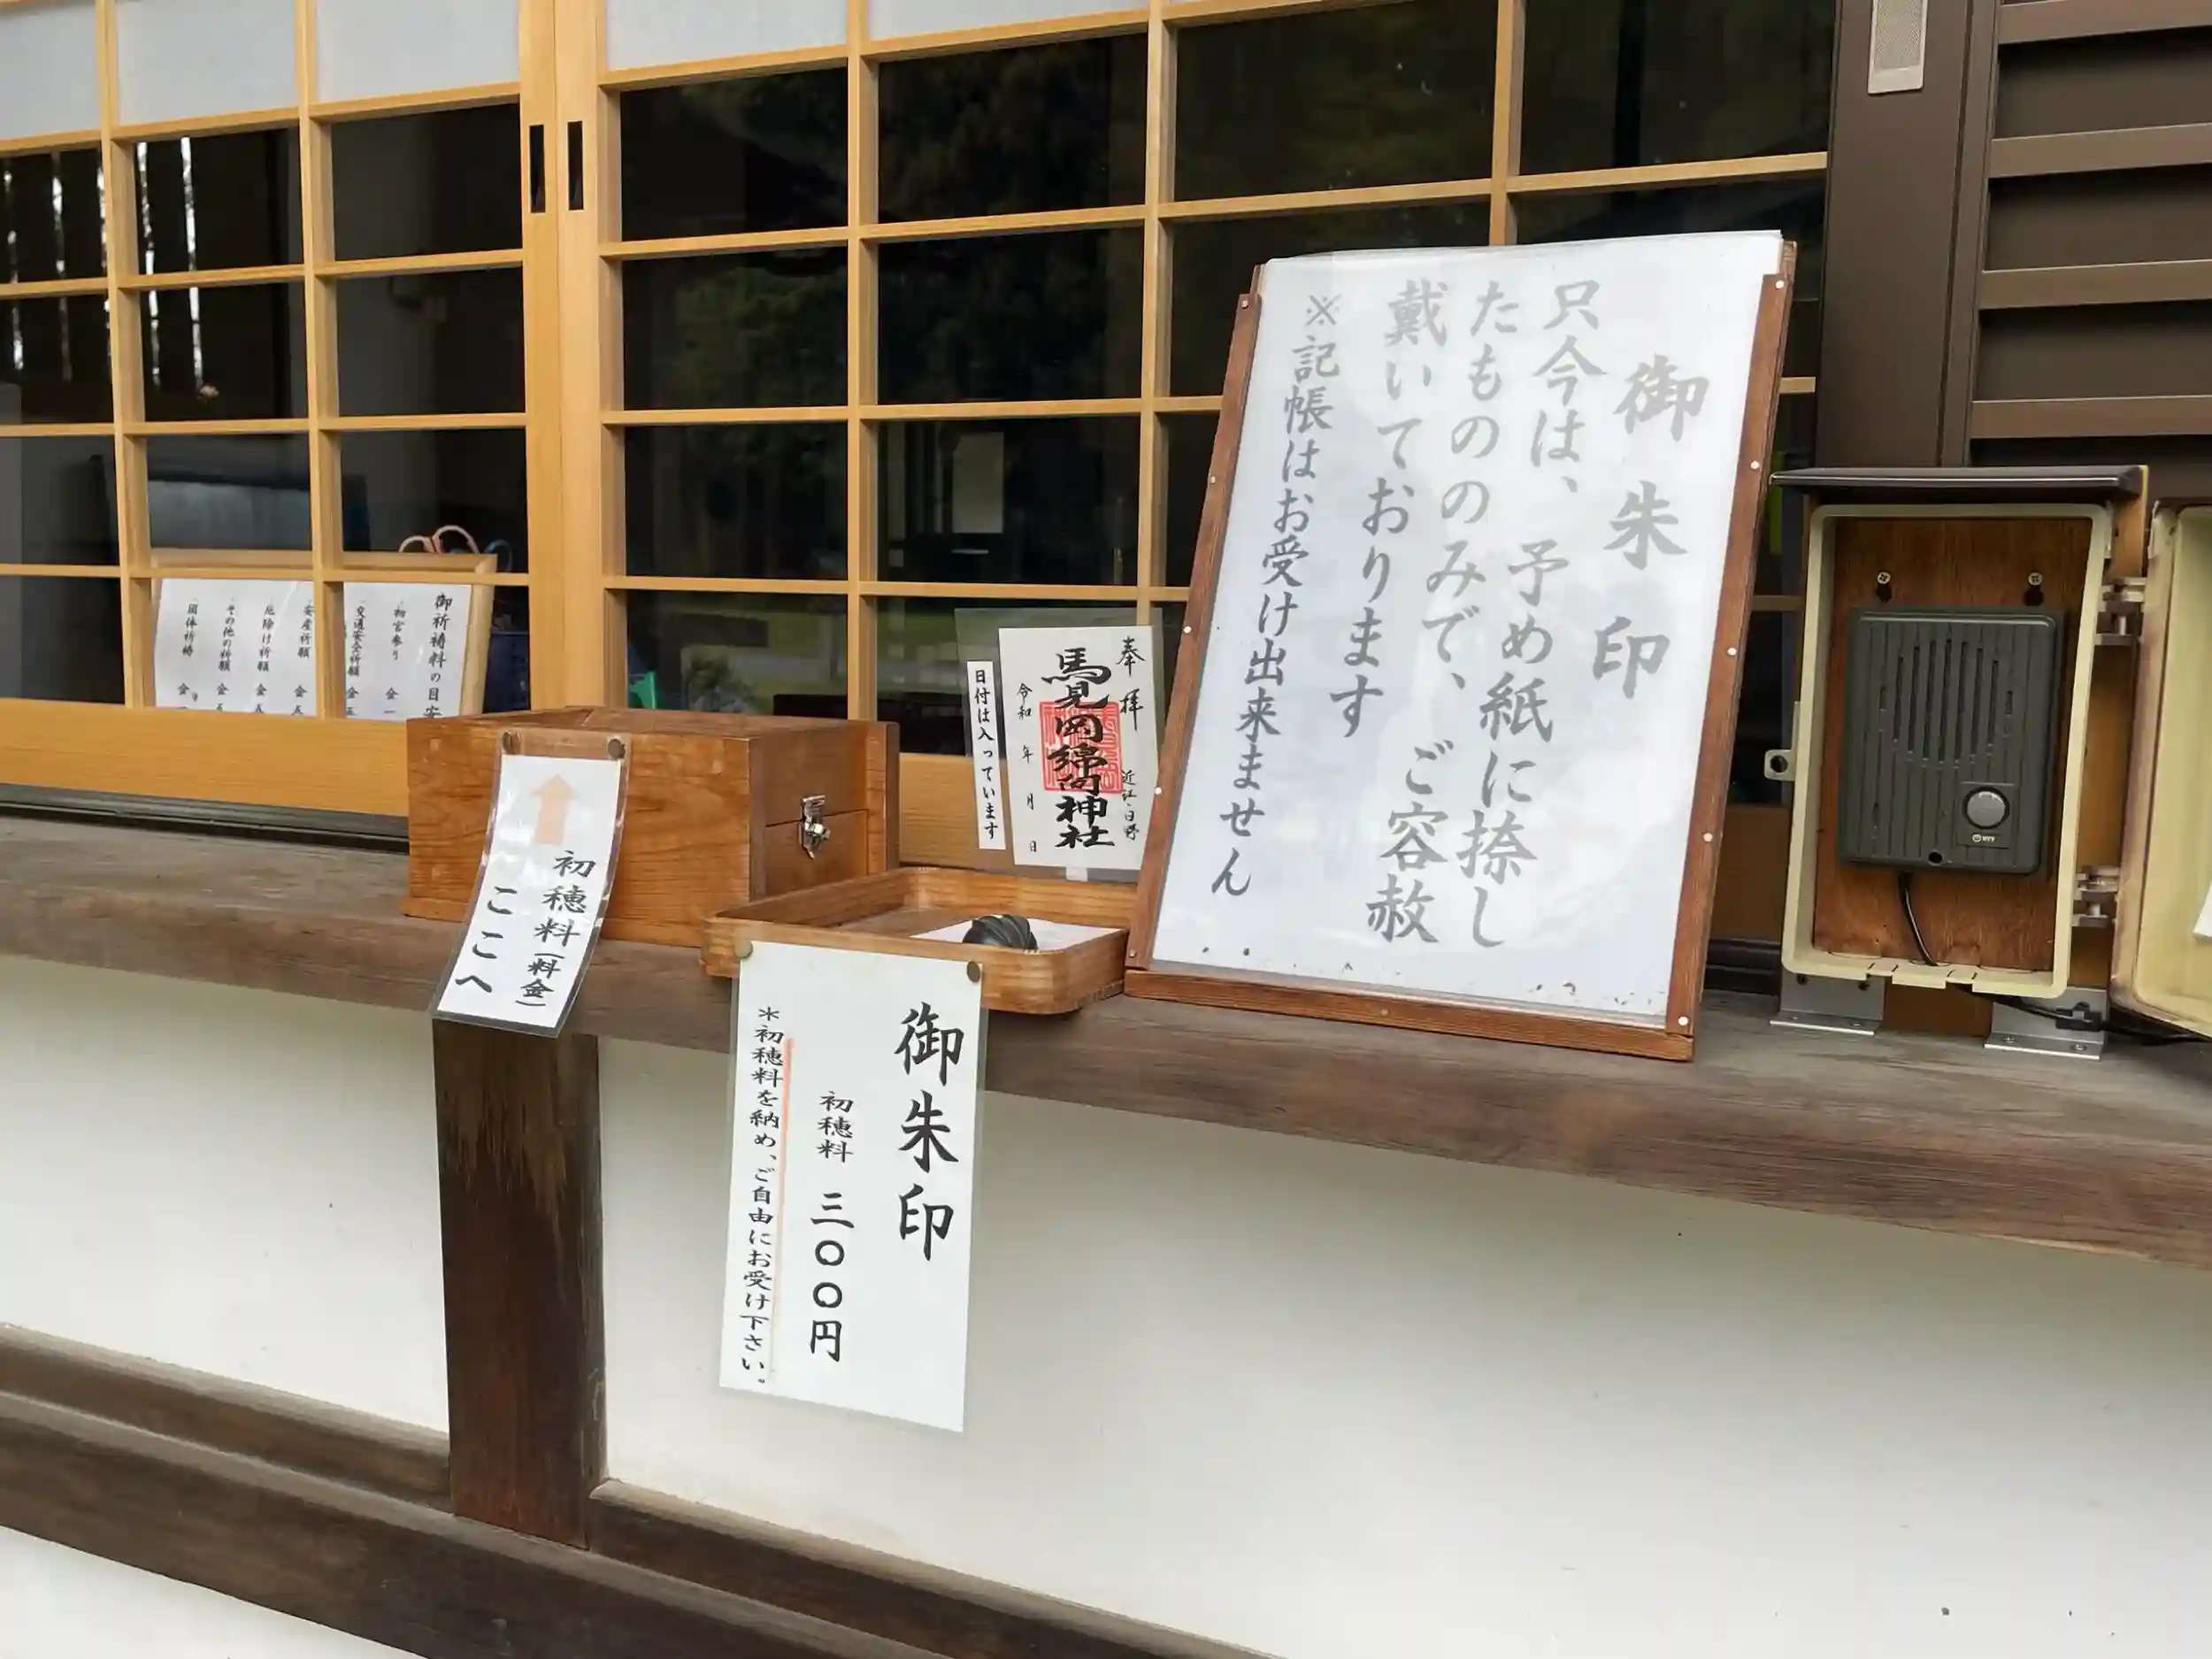 御朱印
只今は、予め紙に捺し
たもののみで、ご容赦
戴いております
※記帳はお受け出来ません
奉拝
近江・日野
馬見岡綿向神社
令和 年 月 日
日付は入っています
御朱印
初穂料 三〇〇円
*初穂料を納め、ご自由にお受け下さい。
初穂料(料金)
ここへ
御祈祷料の目安
初宮参り 金
交通安全祈願 金五
安産祈願 金五
厄除け祈願 金五
その他の祈願 金五
団体祈祷 金